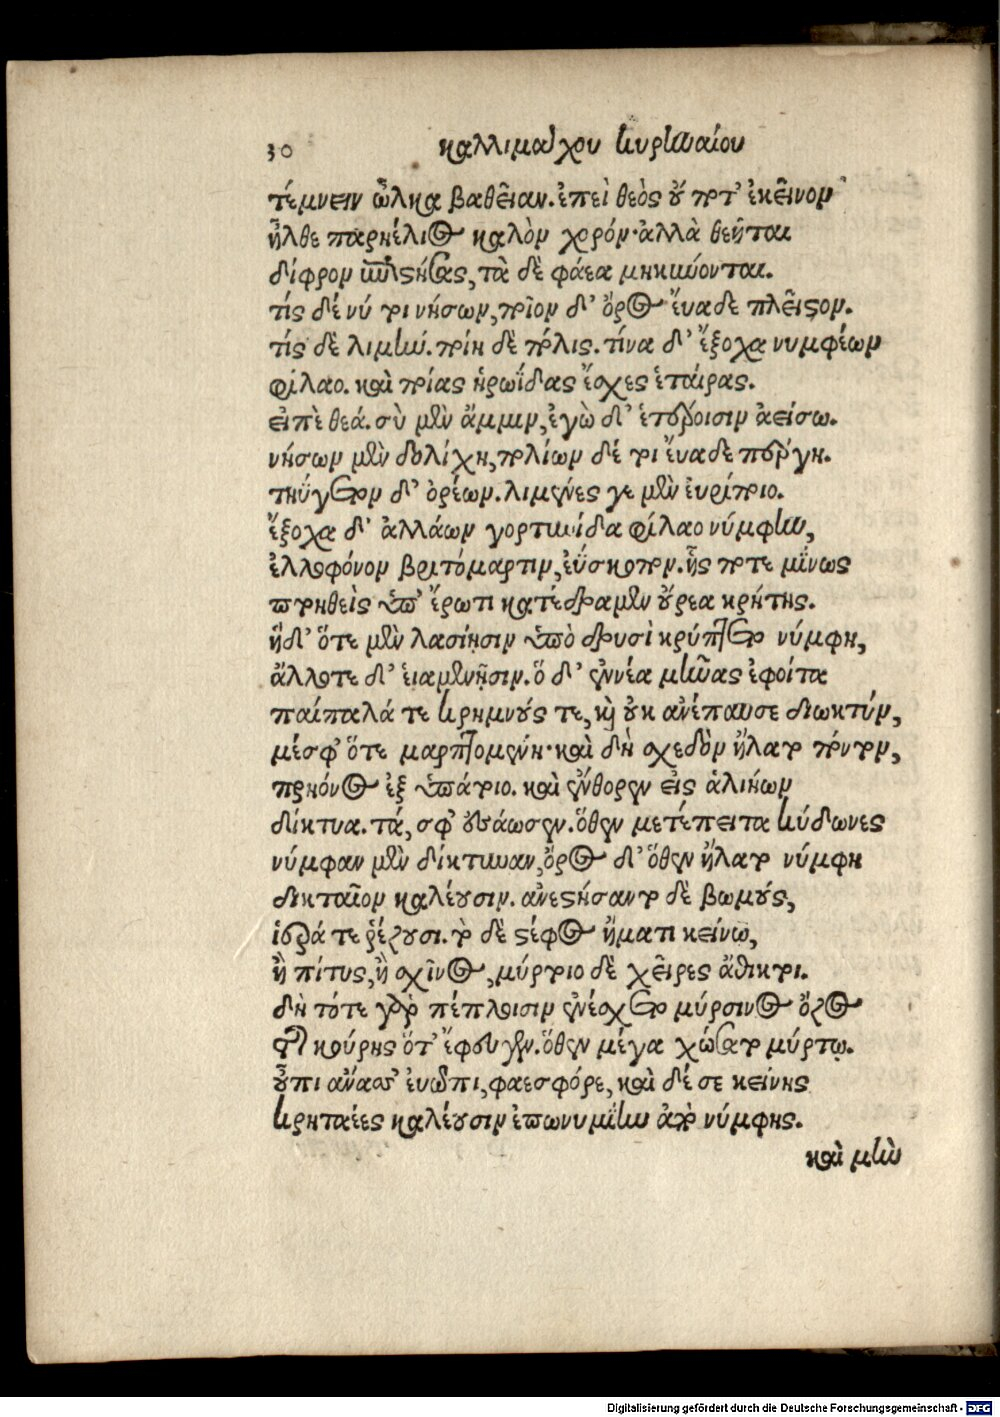 30 καλλιμάχου κυρηναίου
τέμνειν ὦλκα βαθεῖαν. ἐπεὶ θεὸς οὔ ποτ' ἐκεῖνον
ἦλθε παρηέλιος καλὸν χορόν· ἀλλὰ θεῆται
δίφρον ἐπιστήσας, τὰ δὲ φάεα μηκύνονται.
τίς δέ νύ τοι νήσων, ποῖον δ' ὄρος εὔαδε πλεῖστον.
τίς δὲ λιμήν. ποίη δὲ πόλις. τίνα δ' ἔξοχα νυμφέων
φίλαο. καὶ ποίας ἡρωΐδας ἔσχες ἑταίρας.
εἰπὲ θεά. σὺ μὲν ἄμμιν, ἐγὼ δ' ἑτέροισιν ἀείσω.
νήσων μὲν δολίχη, πολίων δέ τοι εὔαδε πέργη.
τηΰγετον δ' ὀρέων. λιμένες γε μὲν εὐρίποιο.
ἔξοχα δ' ἀλλάων γορτυνίδα φίλαο νύμφην,
ἐλλοφόνον βριτόμαρτιν, ἐΰσκοπον. ἧς ποτε μίνως
πτοηθεὶς ὑπ' ἔρωτι κατέδραμεν οὔρεα κρήτης.
ἡ δ' ὅτε μὲν λασίῃσιν ὑπὸ δρυσὶ κρύπτετο νύμφη,
ἄλλοτε δ' εἱαμενῇσιν. ὅ δ' ἐννέα μῆνας ἐφοίτα
παίπαλά τε κρημνούς τε, καὶ οὐκ ἀνέπαυσε διωκτύν,
μέσφ' ὅτε μαρπτομένη· καὶ δὴ σχεδὸν ἥλατο πόντον,
πρηόνος ἐξ ὑπάτοιο. καὶ ἔνθορεν εἰς ἁλιήων
δίκτυα. τά, σφ' ἐσάωσεν. ὅθεν μετέπειτα κύδωνες
νύμφαν μὲν δίκτυναν, ὄρος δ' ὅθεν ἥλατο νύμφη
δικταῖον καλέουσιν. ἀνεστήσαντο δὲ βωμούς,
ἱερά τε ῥέζουσι. τὸ δὲ στέφος ἤματι κείνῳ,
ἢ πίτυς, ἢ σχῖνος, μύρτοιο δὲ χεῖρες ἄθικτοι.
δὴ τότε γὰρ πέπλοισιν ἐνέσχετο μύρσινος ὄζος
τῆς κούρης ὅτ' ἔφευγεν. ὅθεν μέγα χώσατο μύρτῳ.
οὖπι ἄνασσ' εὐῶπι, φαεσφόρε, καὶ δέ σε κείνης
κρηταέες καλέουσιν ἐπωνυμίην ἀπὸ νύμφης.
καὶ μὴν
Digitalisierung gefördert durch die Deutsche Forschungsgemeinschaft - DFG